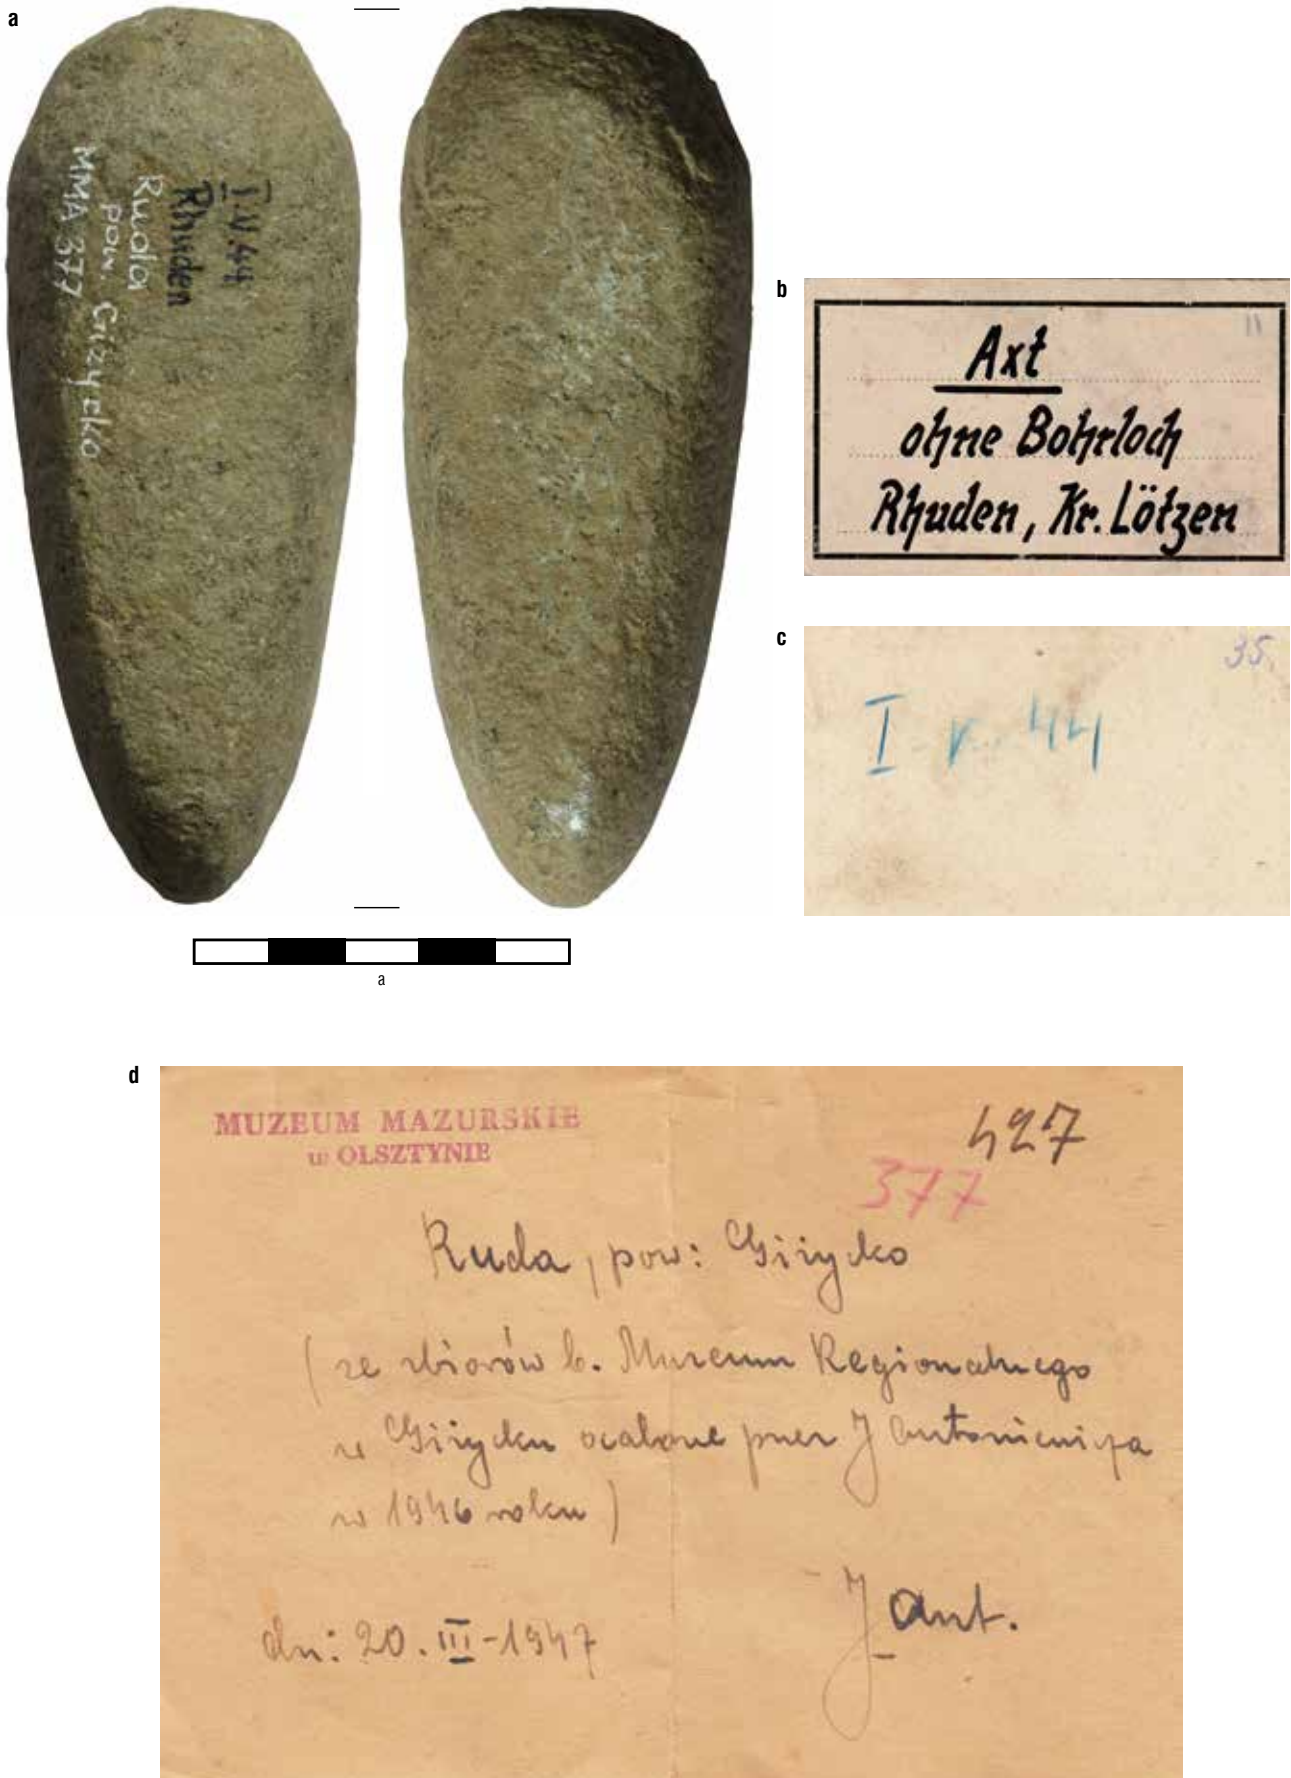 a
I.V.44
Rhuden
Ruda
pow. Giżycko
MMA 377
a
b
11
Axt
ohne Bohrloch
Rhuden, Kr. Lötzen
c
35.
I v. 44
d
MUZEUM MAZURSKIE
w OLSZTYNIE
427
377
Ruda, pow: Giżycko
(ze zbiorów b. Muzeum Regionalnego
w Giżycku ocalone przez J Antoniewicza
w 1946 roku)
dn: 20. III-1947
J Ant.